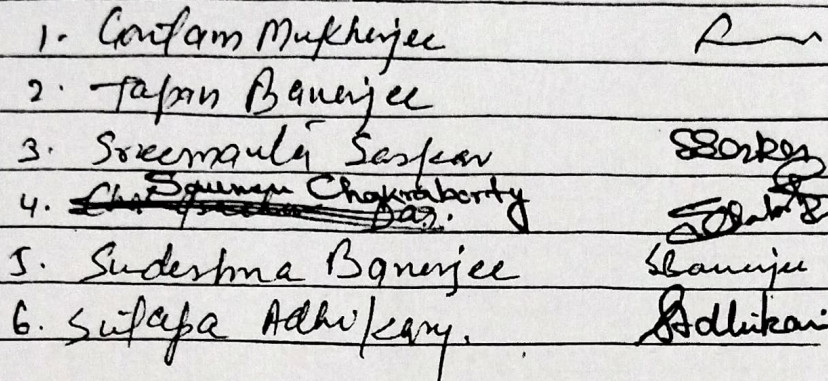 1. Goutam Mukherjee
2. Tapan Banerjee
3. Sreemanta Sarkar SSarkar
4. Chakraborty
Das.
5. Sudeshna Banerjee SBanerjee
6. Sutapa Adhikary. SAdhikari